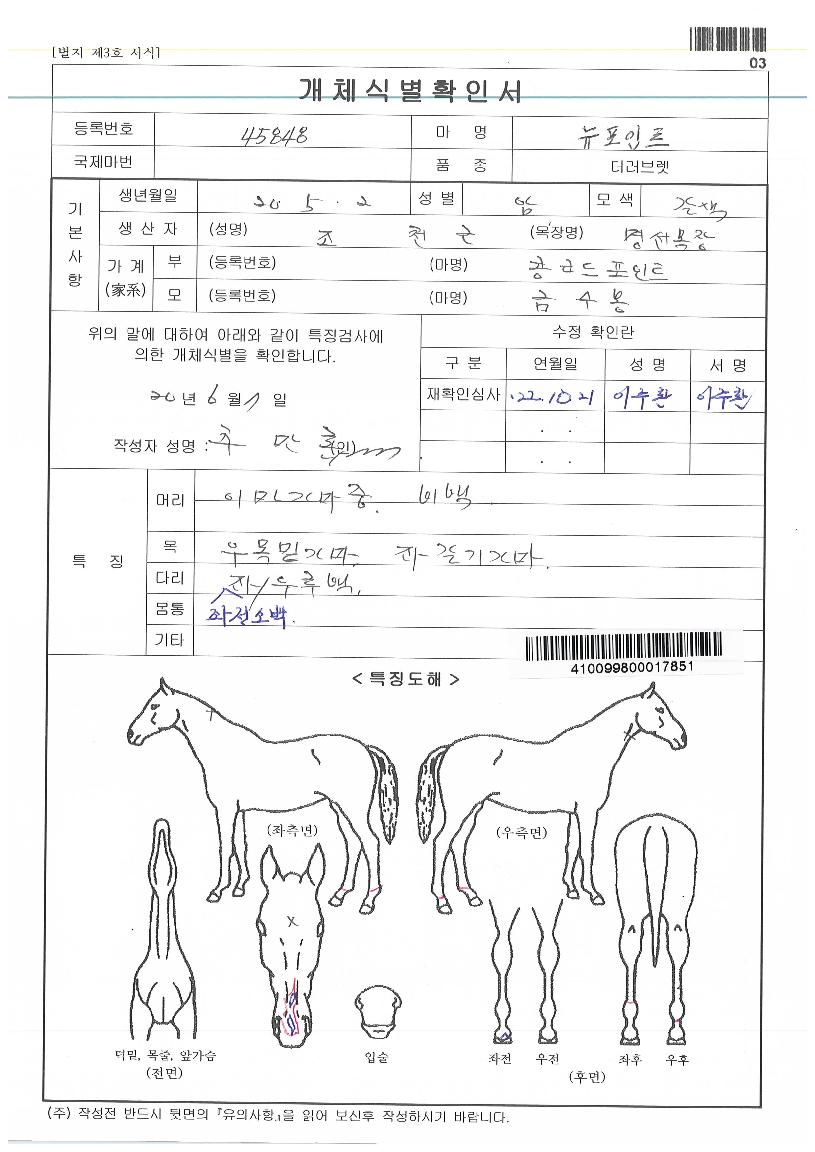 [별지 제3호 서식]
03
개체식별확인서
등록번호 45848 마 명 뉴포인트
국제마번 품 종 더러브렛
기본사항
생년월일 20 5 . 2 성 별 암 모 색 갈색
생 산 자 (성명) 조 천 군 (목장명) 명선목장
가 계 (家系) 부 (등록번호) (마명) 콩코드포인트
모 (등록번호) (마명) 금수봉
위의 말에 대하여 아래와 같이 특징검사에
의한 개체식별을 확인합니다.
20 년 6 월 1 일
작성자 성명 : (인)
수정 확인란
구 분 연월일 성 명 서 명
재확인심사 '22.10.21 이주환 이주환
. .
. .
특 징
머리 이마가마중. 비백
목 우목밑가마. 좌갈기가마.
다리 좌/우후백.
몸통 좌전소백.
기타
410099800017851
< 특징도해 >
(좌측면) (우측면)
턱밑, 목줄, 앞가슴
(전면)
입술
좌전 우전 좌후 우후
(후면)
(주) 작성전 반드시 뒷면의 『유의사항』을 읽어 보신후 작성하시기 바랍니다.